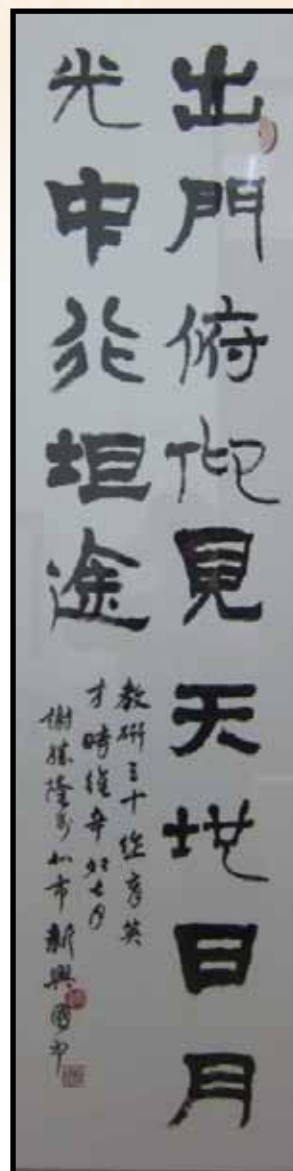 出門俯仰見天地日月
光中行坦途
教研三十育英
才時維辛卯七月
謝隆市新興國中